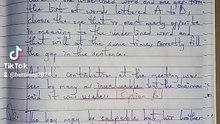 the underlined word and one from
the list of words lettered A to D,
choose the one that is most nearly opposite
in meaning to the underlined word and
that will at the same time correctly fill
the gap in the sentence.
TikTok
contribution at the meeting was
seen by many as invaluable but the chairman
said it was useless Option A
The boy may be culpable but his brother